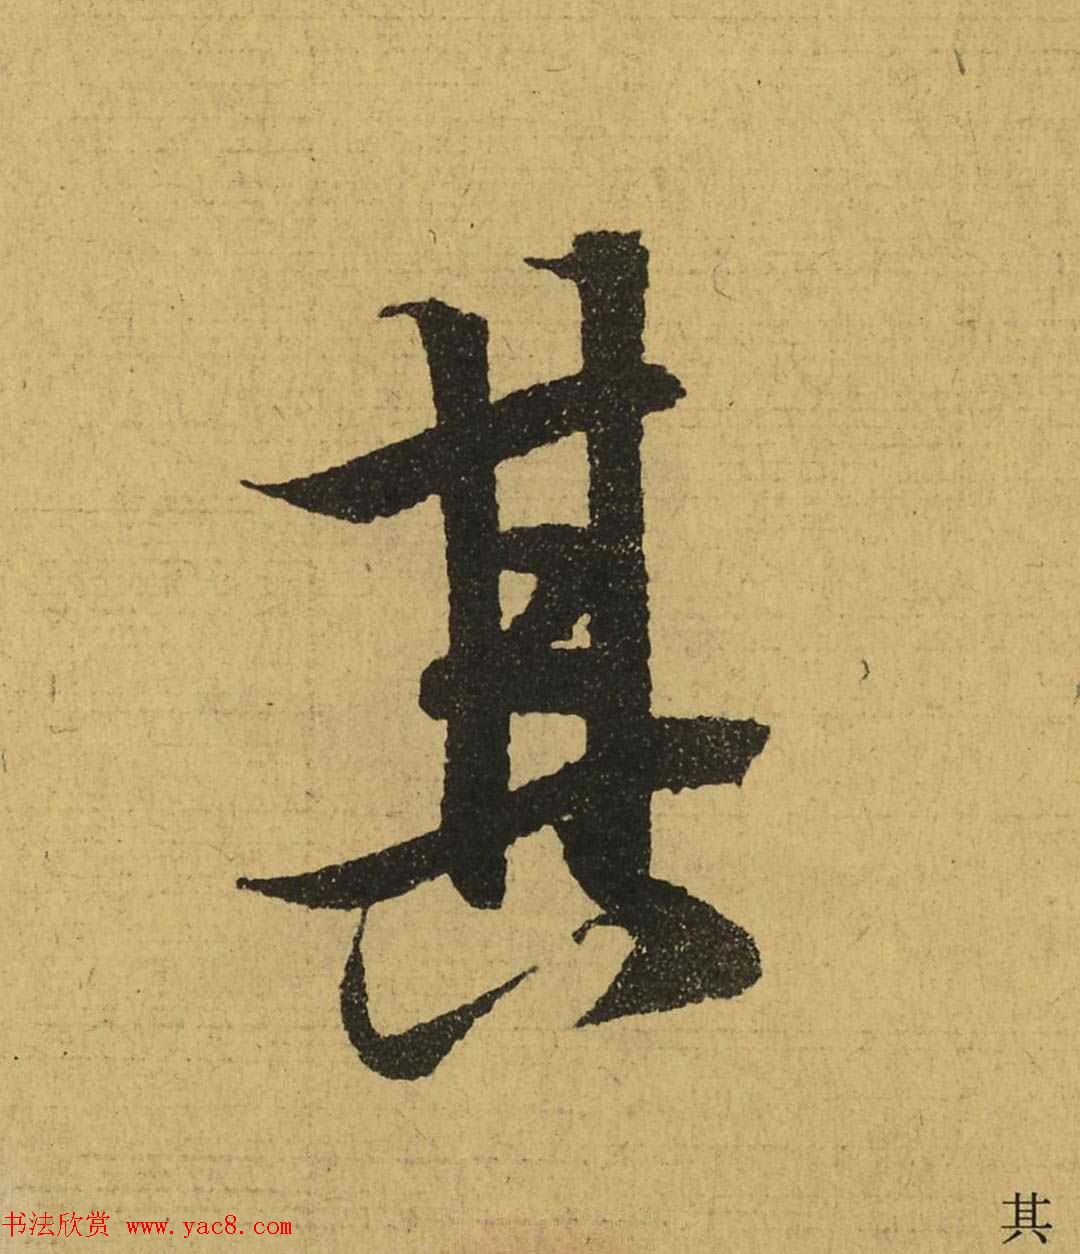 其
其
书法欣赏 www.yac8.com